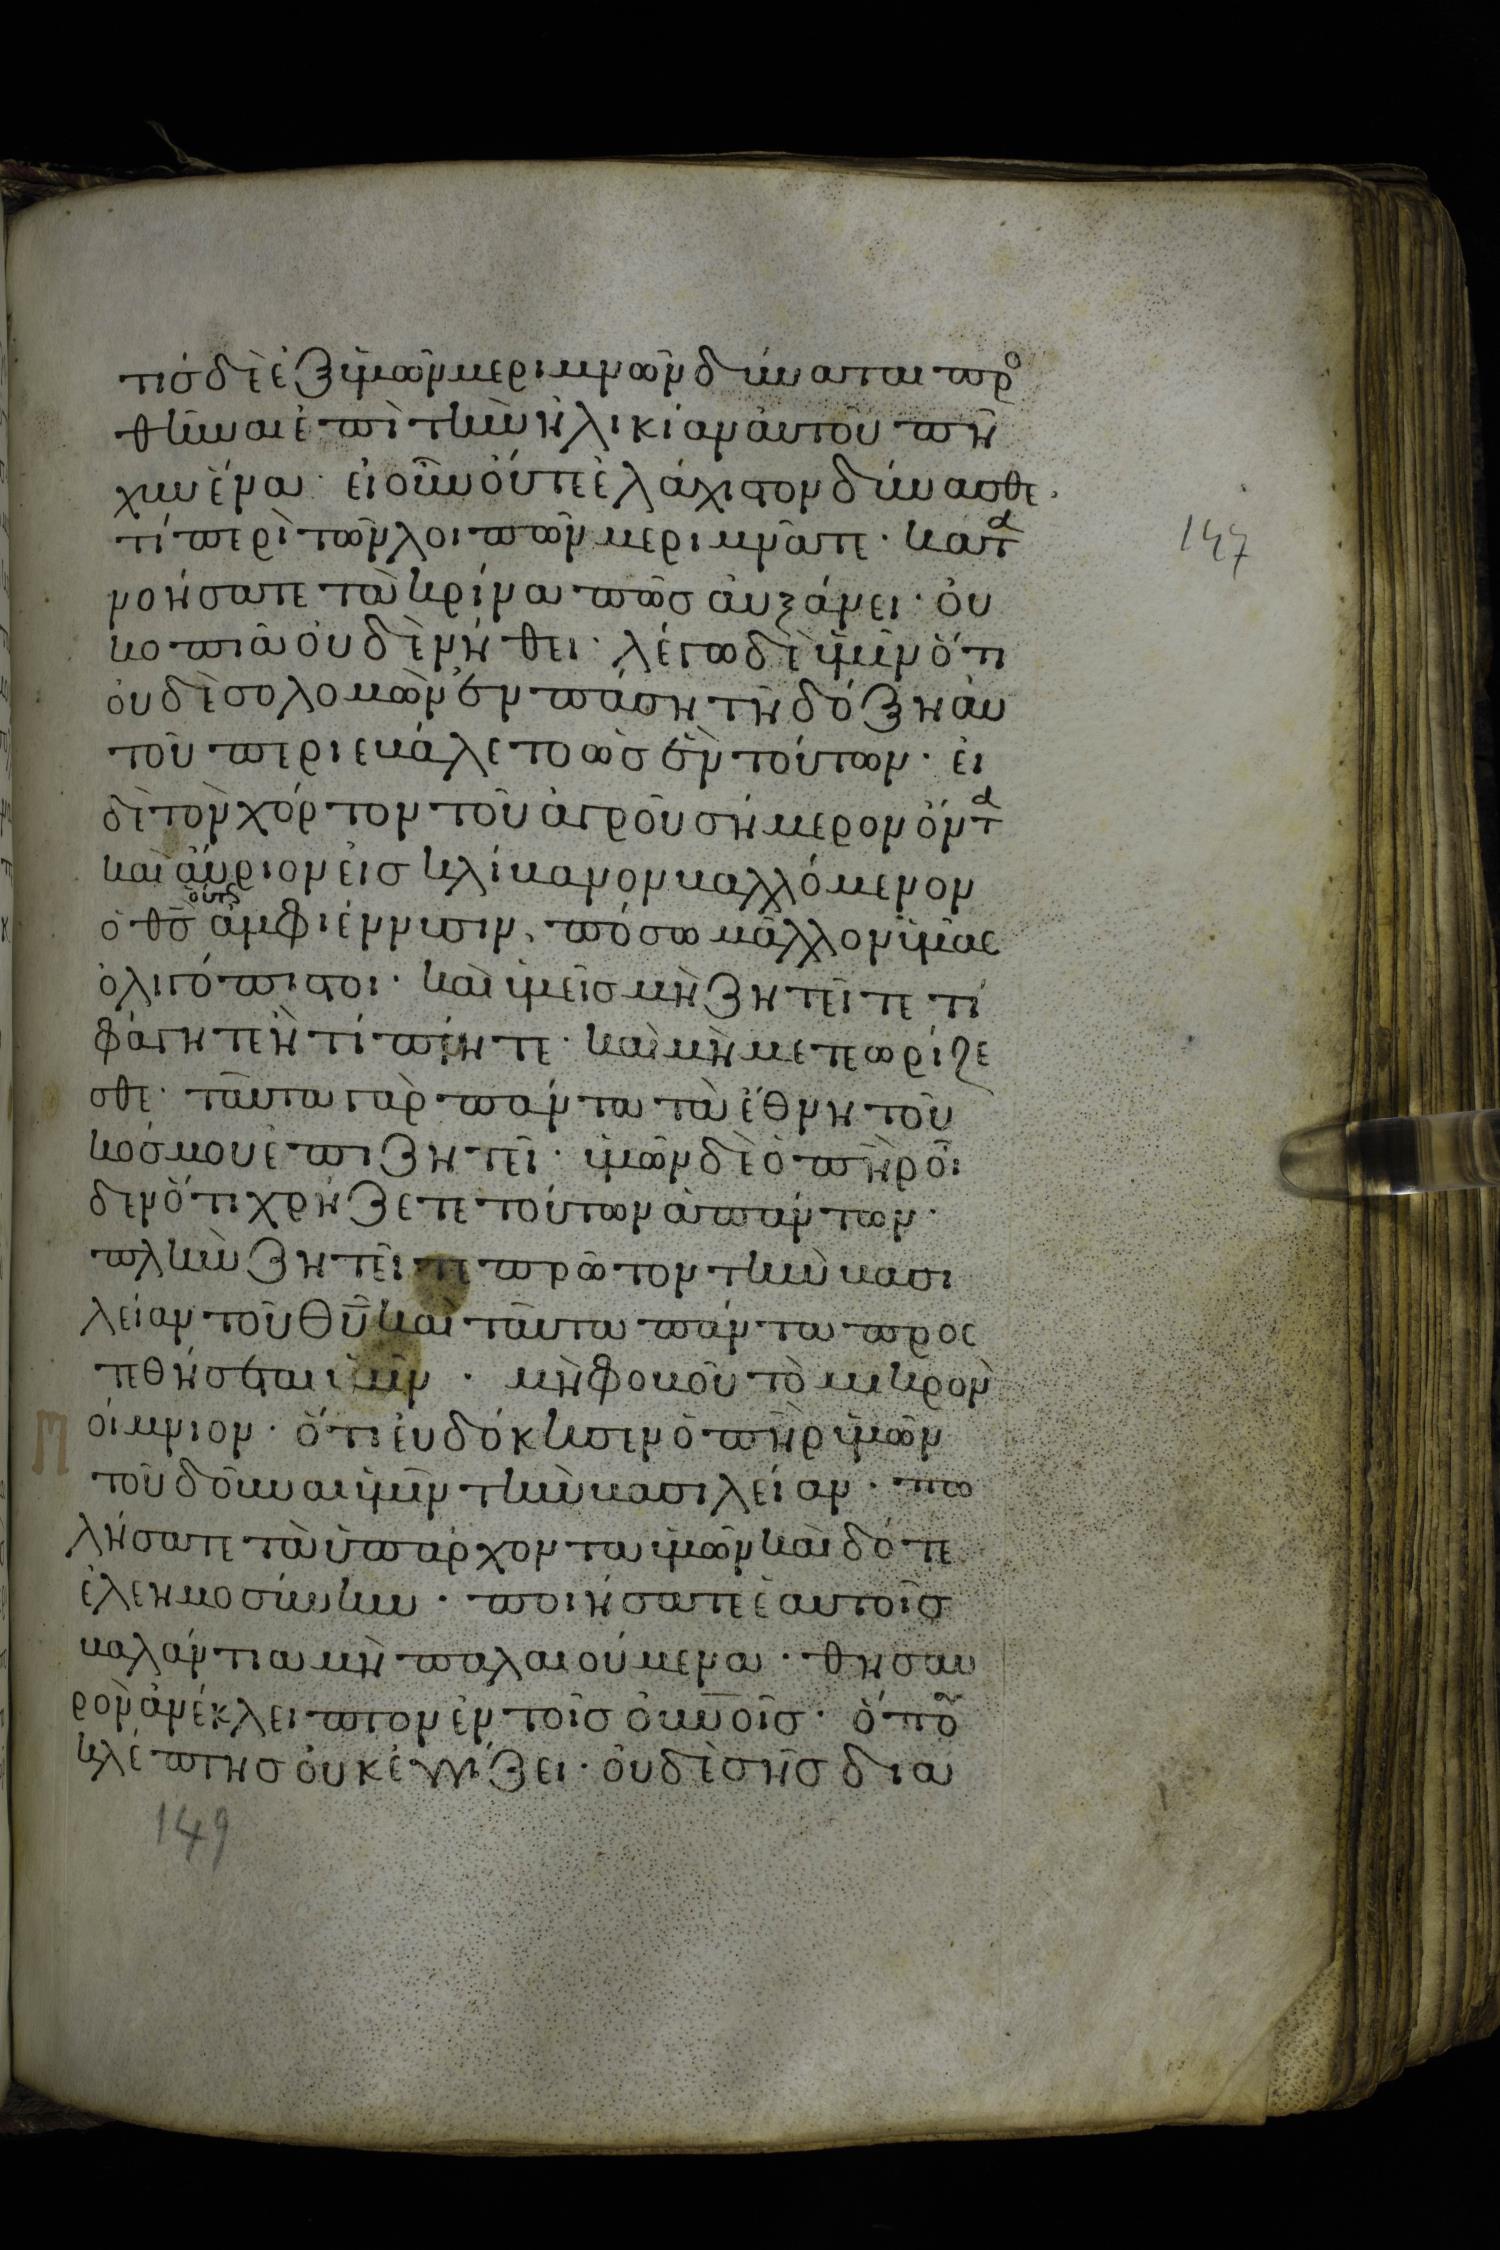 τισ δὲ ἐξ ὑμῶν μεριμνῶν δύναται προ
θῆναι ἐπὶ τὴν ἡλικίαν ἀυτοῦ πῆ
χυν ἕνα· εἰ οὖν οὔτε ἐλάχιστον δύνασθε.
τί περὶ τῶν λοιπῶν μεριμνᾶτε· κατα
νοήσατε τὰ κρίνα πῶσ ἀυξάνει· ὀυ
κοπιᾶ ὀυδὲ νήθει· λέγω δὲ ὑμῖν ὅτι
ὀυδὲ σολομὼν ἐν πάση τῆ δόξη ἀυ
τοῦ περιεβάλετο ὡσ ἓν τούτων· ἐι
δὲ τὸν χόρτον τοῦ ἀγροῦ σήμερον ὄντα
καὶ ἄυριον ἐισ κλίβανον βαλλόμενον
ὁ θσ ὅυτως ἀμφιέννυσιν, πόσω μᾶλλον ὑμᾶς
ὀλιγόπιστοι· καὶ ὑμεῖσ μὴ ζητεῖτε τί
φάγητε ἢ τί πίητε· καὶ μὴ μετεωρίζε
σθε· ταῦτα γὰρ πάντα τὰ ἔθνη τοῦ
κόσμου ἐπιζητεῖ· ὑμῶν δὲ ὁ πηρ οἶ
δεν ὅτι χρήζετε τούτων ἁπάντων·
πλὴν ζητεῖτε πρῶτον τὴν βασι
λείαν τοῦ θυ καὶ ταῦτα πάντα προς
τεθήσεται ὑμῖν · μὴ φοβοῦ τὸ μικρὸν
ποίμνιον· ὅτι ἐυδόκησεν ὁ πηρ ὑμῶν
τοῦ δοῦναι ὑμῖν τὴν βασιλείαν· πω
λήσατε τὰ ὑπάρχοντα ὑμῶν καὶ δότε
ἐλεημοσύνην · ποιήσατε ἑαυτοῖσ
βαλάντια μὴ παλαιούμενα· θησαυ
ρὸν ἀνέκλειπτον ἐν τοῖσ ὀυνοῖσ· ὅπου
κλέπτησ ὀυκ ἐγγίζει· ὀυδὲ σὴσ δια
147
149